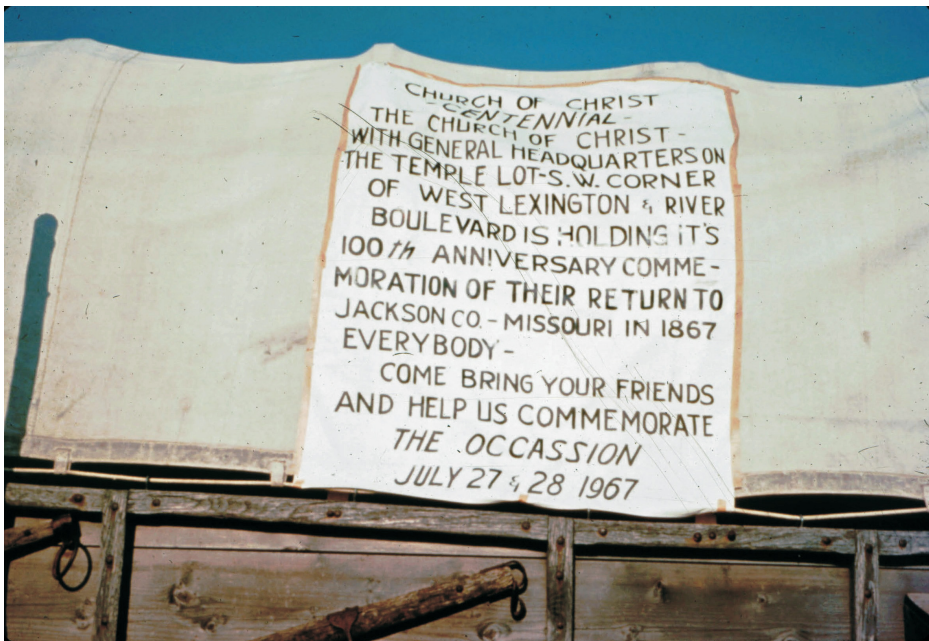 CHURCH OF CHRIST
- CENTENNIAL -
THE CHURCH OF CHRIST -
WITH GENERAL HEADQUARTERS ON
THE TEMPLE LOT-S.W. CORNER
OF WEST LEXINGTON & RIVER
BOULEVARD IS HOLDING IT'S
100th ANNIVERSARY COMME-
MORATION OF THEIR RETURN TO
JACKSON CO. - MISSOURI IN 1867
EVERYBODY -
COME BRING YOUR FRIENDS
AND HELP US COMMEMORATE
THE OCCASSION
JULY 27 & 28 1967